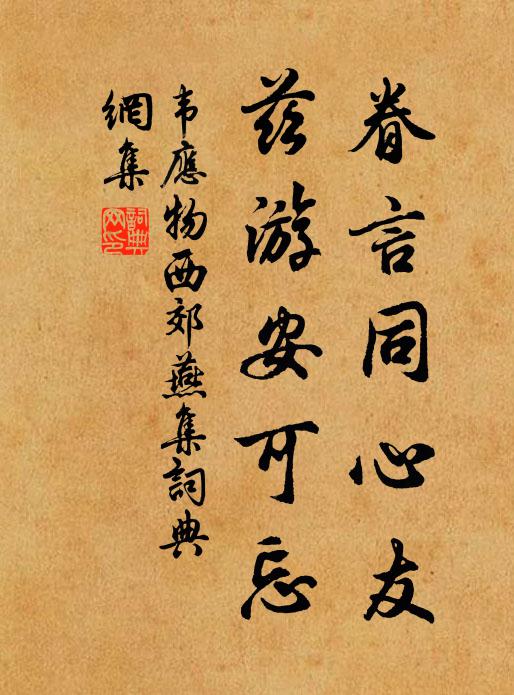 眷言同心友
兹游安可忘
韦應物西郊燕集詞典
網集
詞典網印